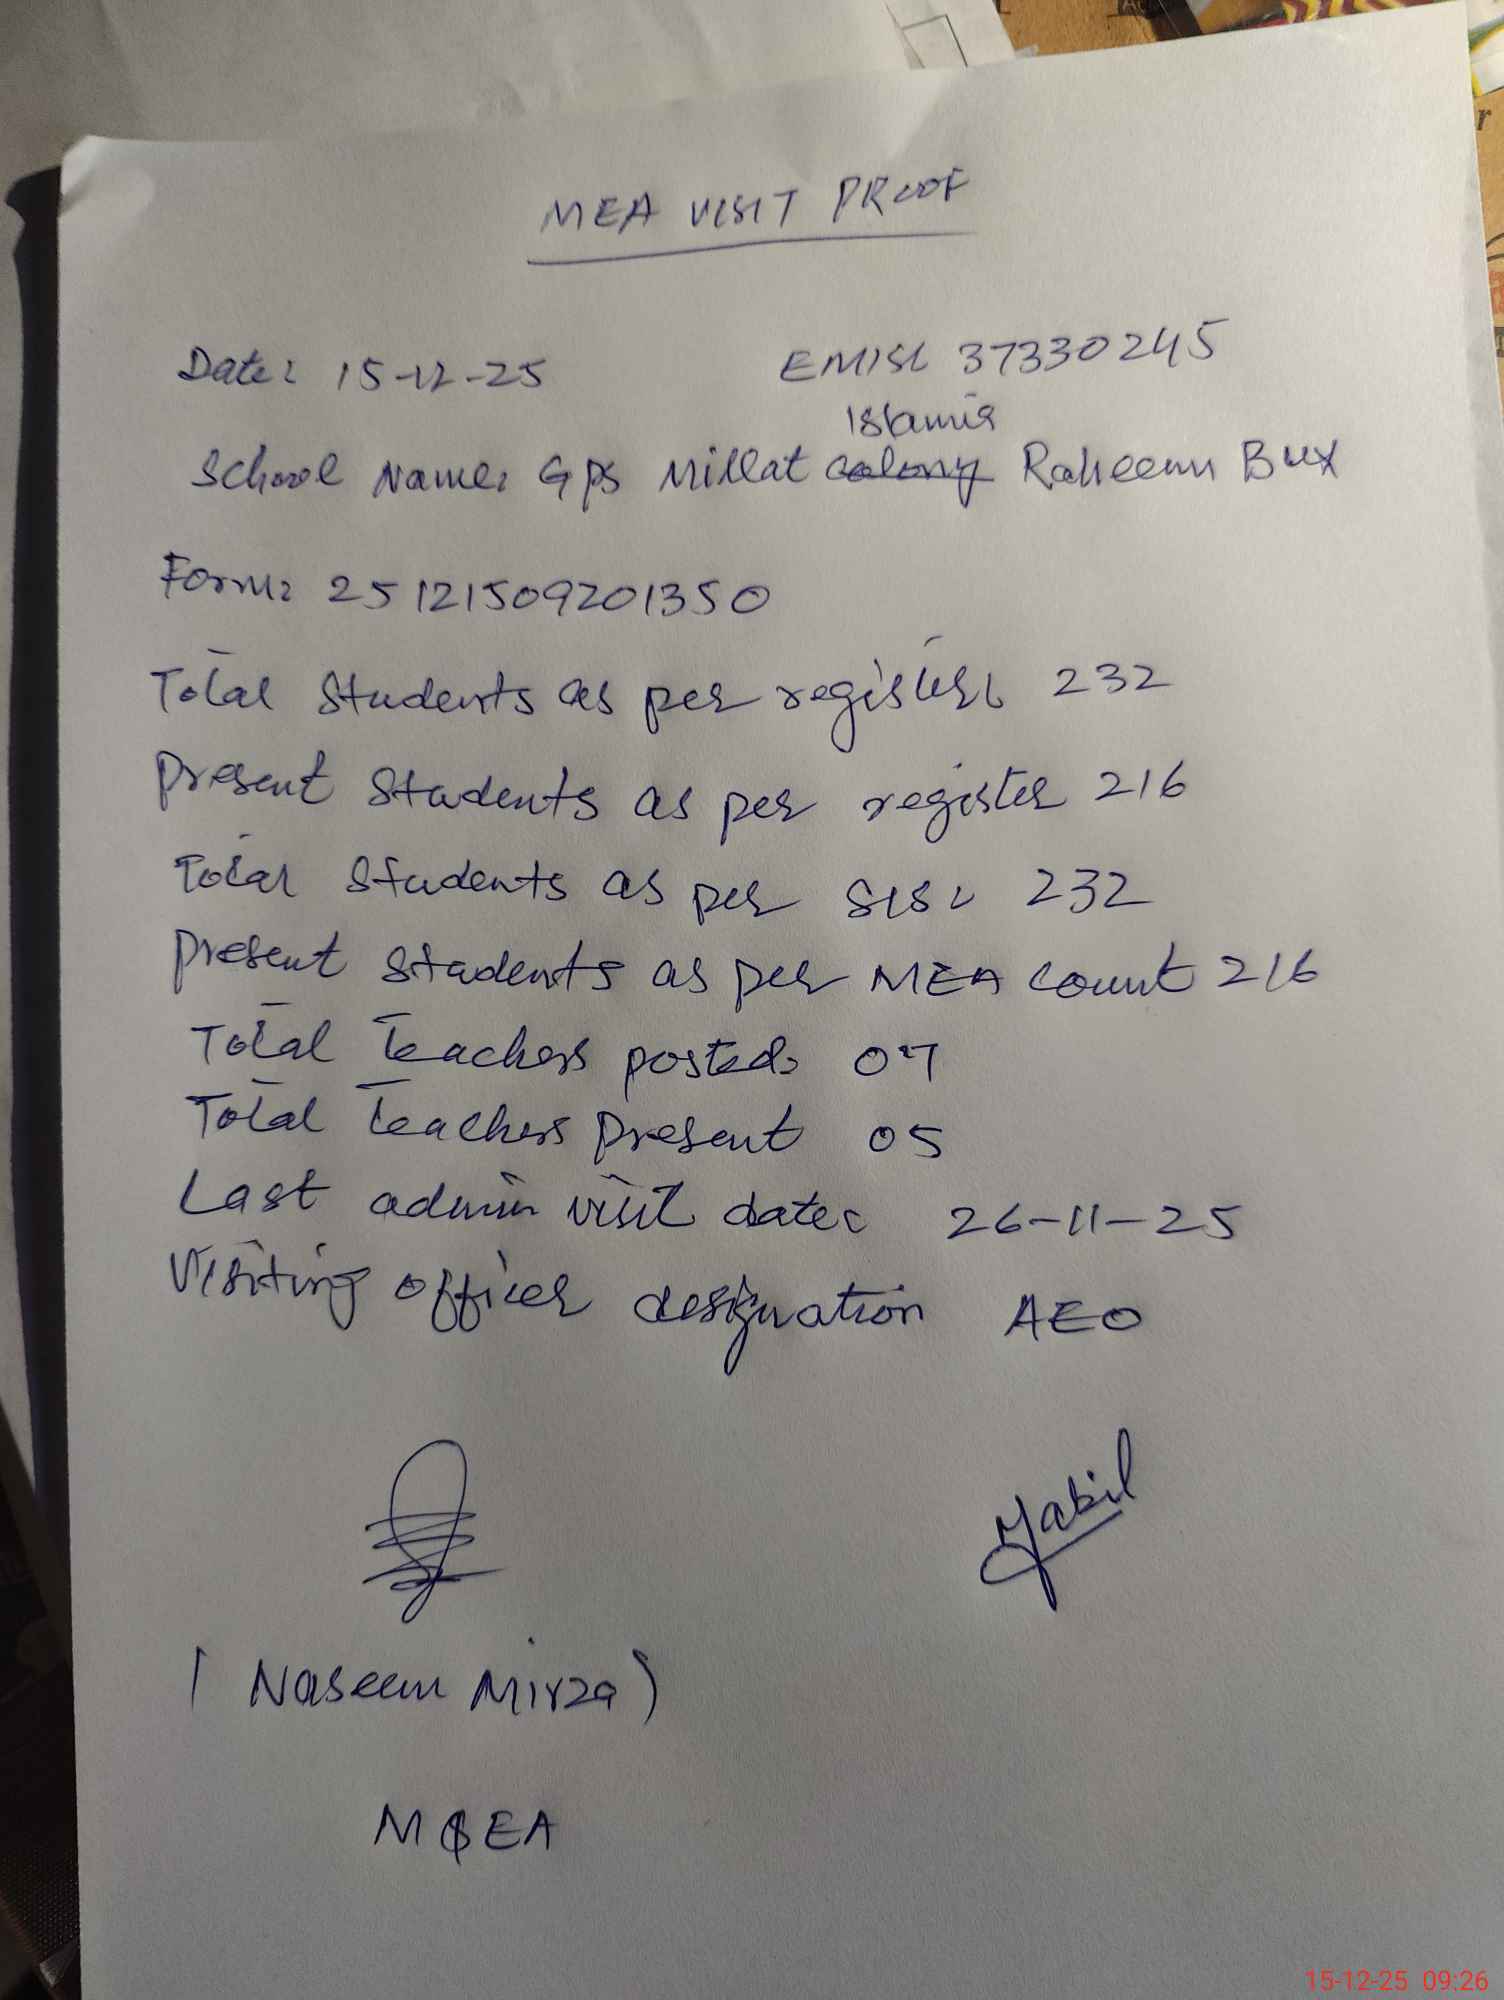 MEA VISIT PROOF
Date: 15-12-25 EMIS: 37330245
Islamia
School Name: Gps Millat colony Raheem Bux
Form: 25121509201350
Total Students as per register: 232
Present Students as per register 216
Total Students as per SIS: 232
Present Students as per MEA count 216
Total Teachers posted: 07
Total Teachers Present 05
Last admin visit date: 26-11-25
Visiting officer designation AEO
(Naseem Mirza)
M&EA
15-12-25 09:26